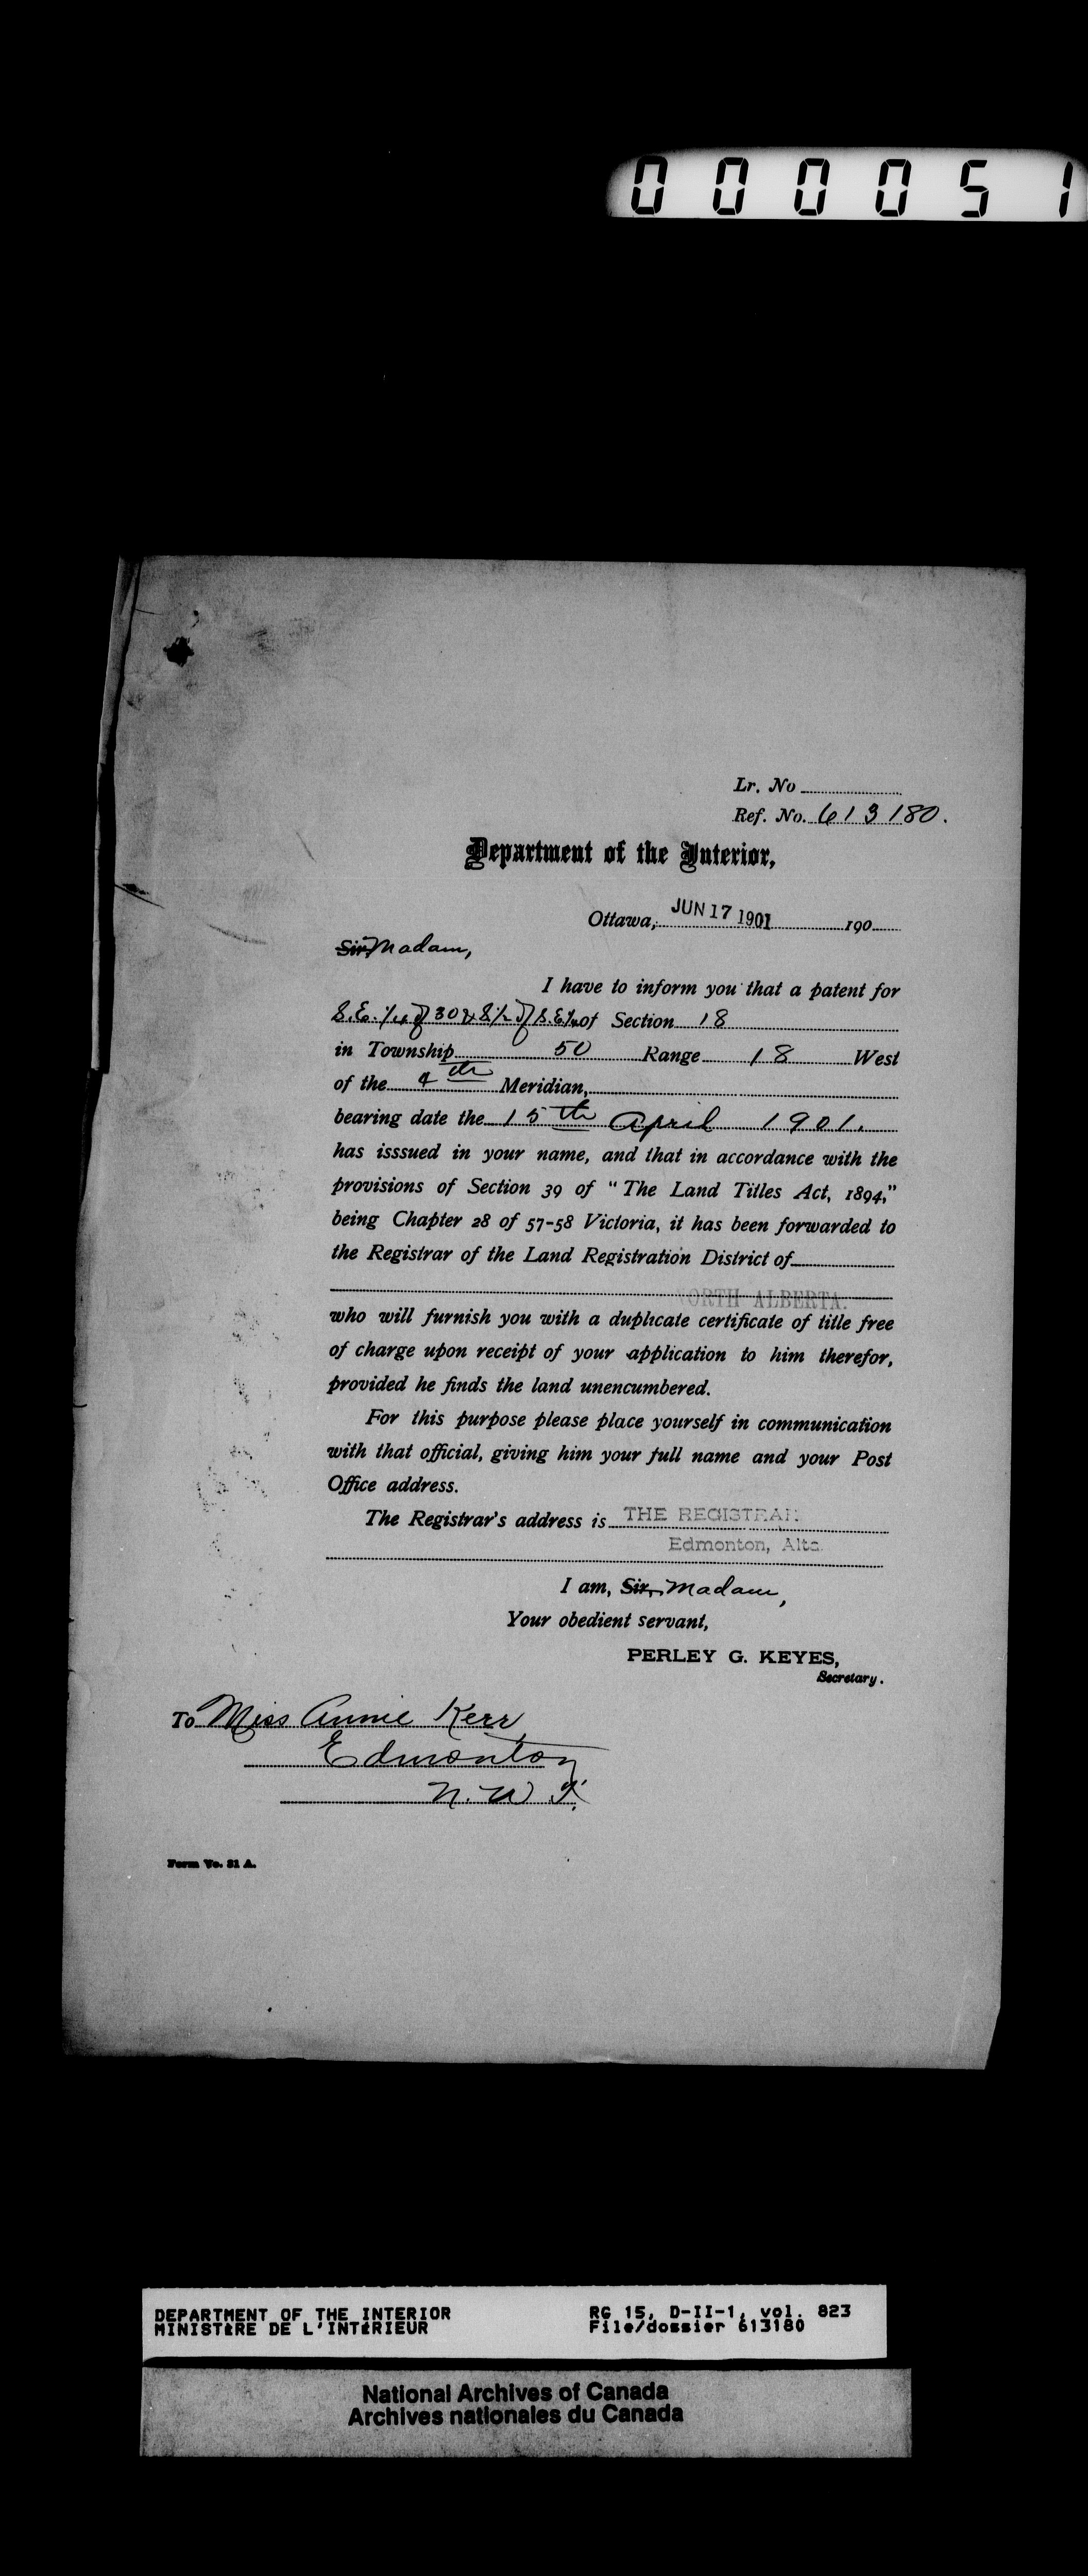 000051
Lr. No
Ref. No. 613180.
Department of the Interior,
Ottawa, JUN 17 1901 190
Sir, Madam,
I have to inform you that a patent for
S.E. 1/4 of 30 & S 1/2 of S.E 1/4 of Section 18
in Township 50 Range 18 West
of the 4th Meridian,
bearing date the 15th April 1901.
has isssued in your name, and that in accordance with the
provisions of Section 39 of "The Land Titles Act, 1894,"
being Chapter 28 of 57-58 Victoria, it has been forwarded to
the Registrar of the Land Registration District of
NORTH ALBERTA.
who will furnish you with a duplicate certificate of title free
of charge upon receipt of your application to him therefor,
provided he finds the land unencumbered.
For this purpose please place yourself in communication
with that official, giving him your full name and your Post
Office address.
The Registrar's address is THE REGISTRAR
Edmonton, Alta.
I am, Sir, Madam,
Your obedient servant,
PERLEY G. KEYES,
Secretary.
To Miss Annie Kerr
Edmonton
N.W.T.
Form No. 81 A.
DEPARTMENT OF THE INTERIOR RG 15, D-II-1, vol. 823
MINISTÈRE DE L'INTÉRIEUR File/dossier 613180
National Archives of Canada
Archives nationales du Canada